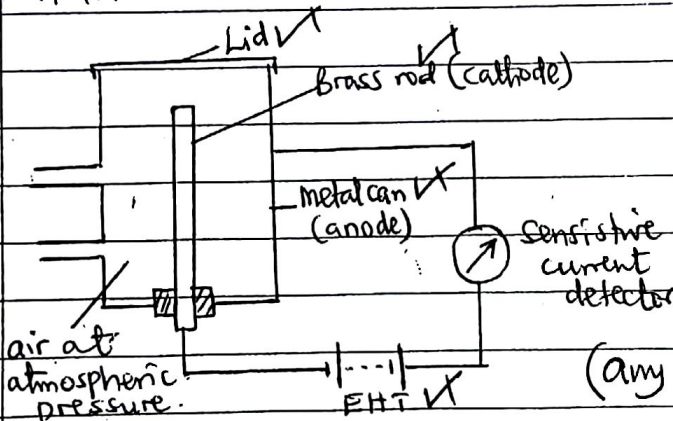 Lid
Brass rod (cathode)
metal can
(anode)
sensistive
current
detector
air at
atmospheric
pressure.
EHT
(any